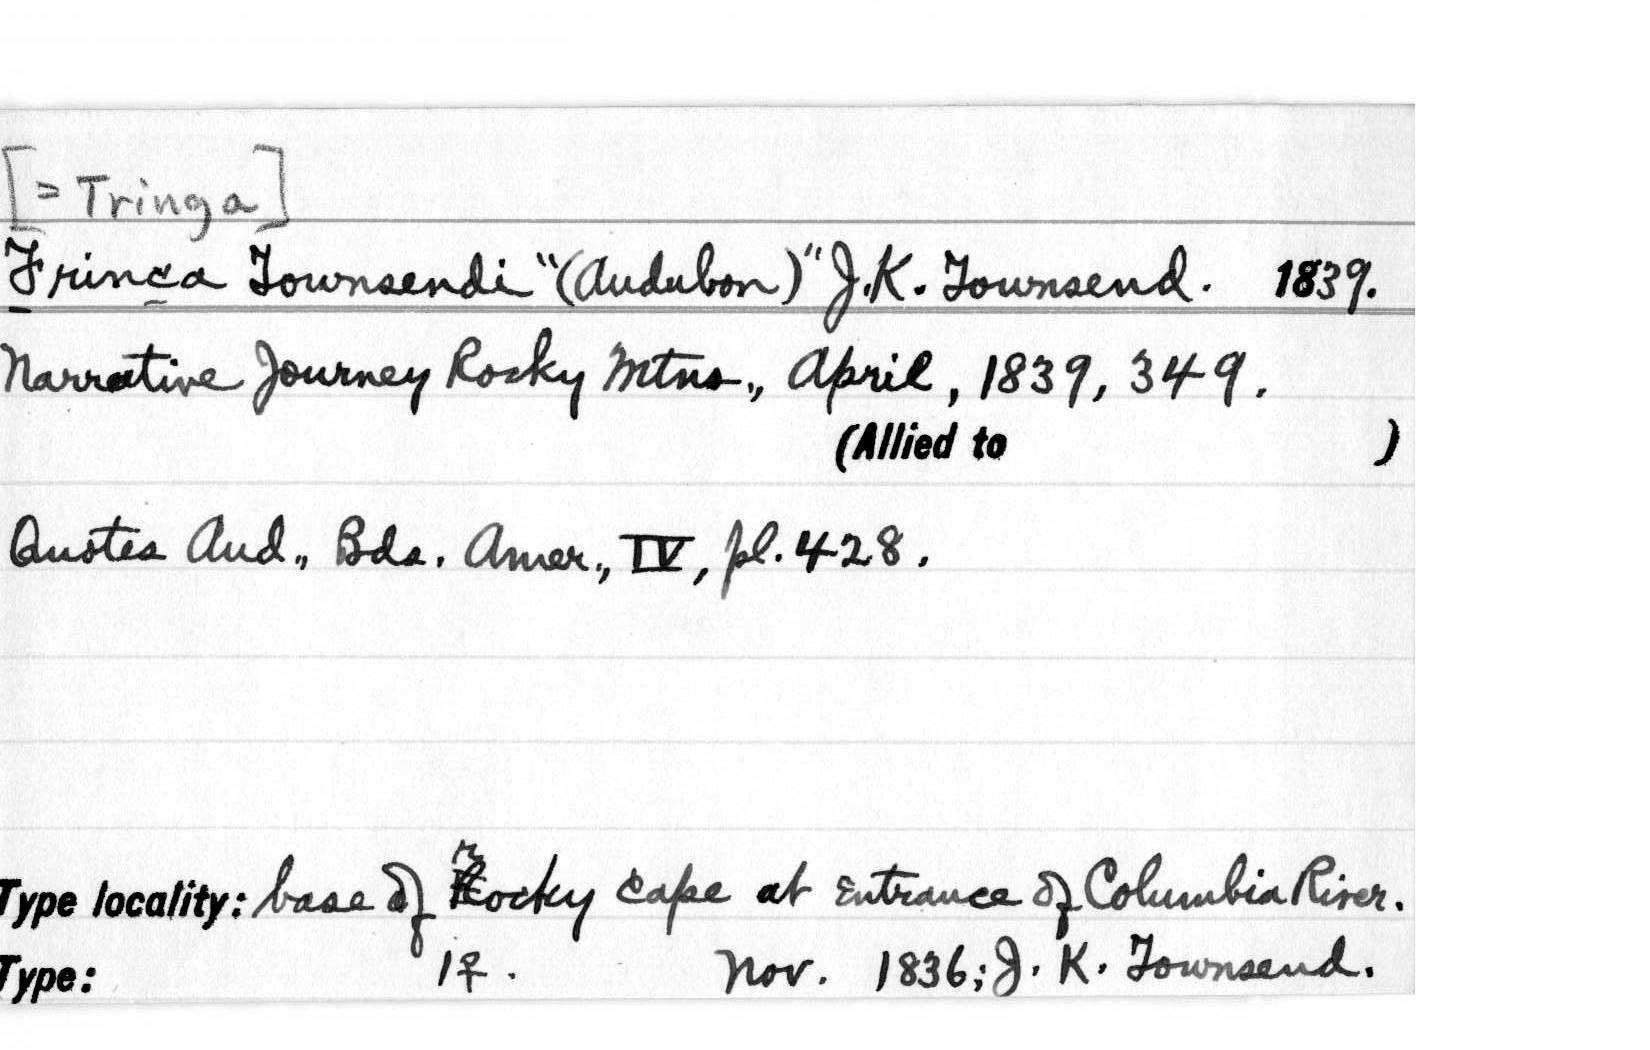 [= Tringa]
Frinca Townsendi "(Audubon)" J.K. Townsend. 1839.
Narrative Journey Rocky Mtns., April, 1839, 349.
(Allied to )
Quotes Aud., Bds. Amer., IV, pl. 428.
Type locality: base of rocky cape at Entrance of Columbia River.
Type: 1♀. Nov. 1836; J. K. Townsend.